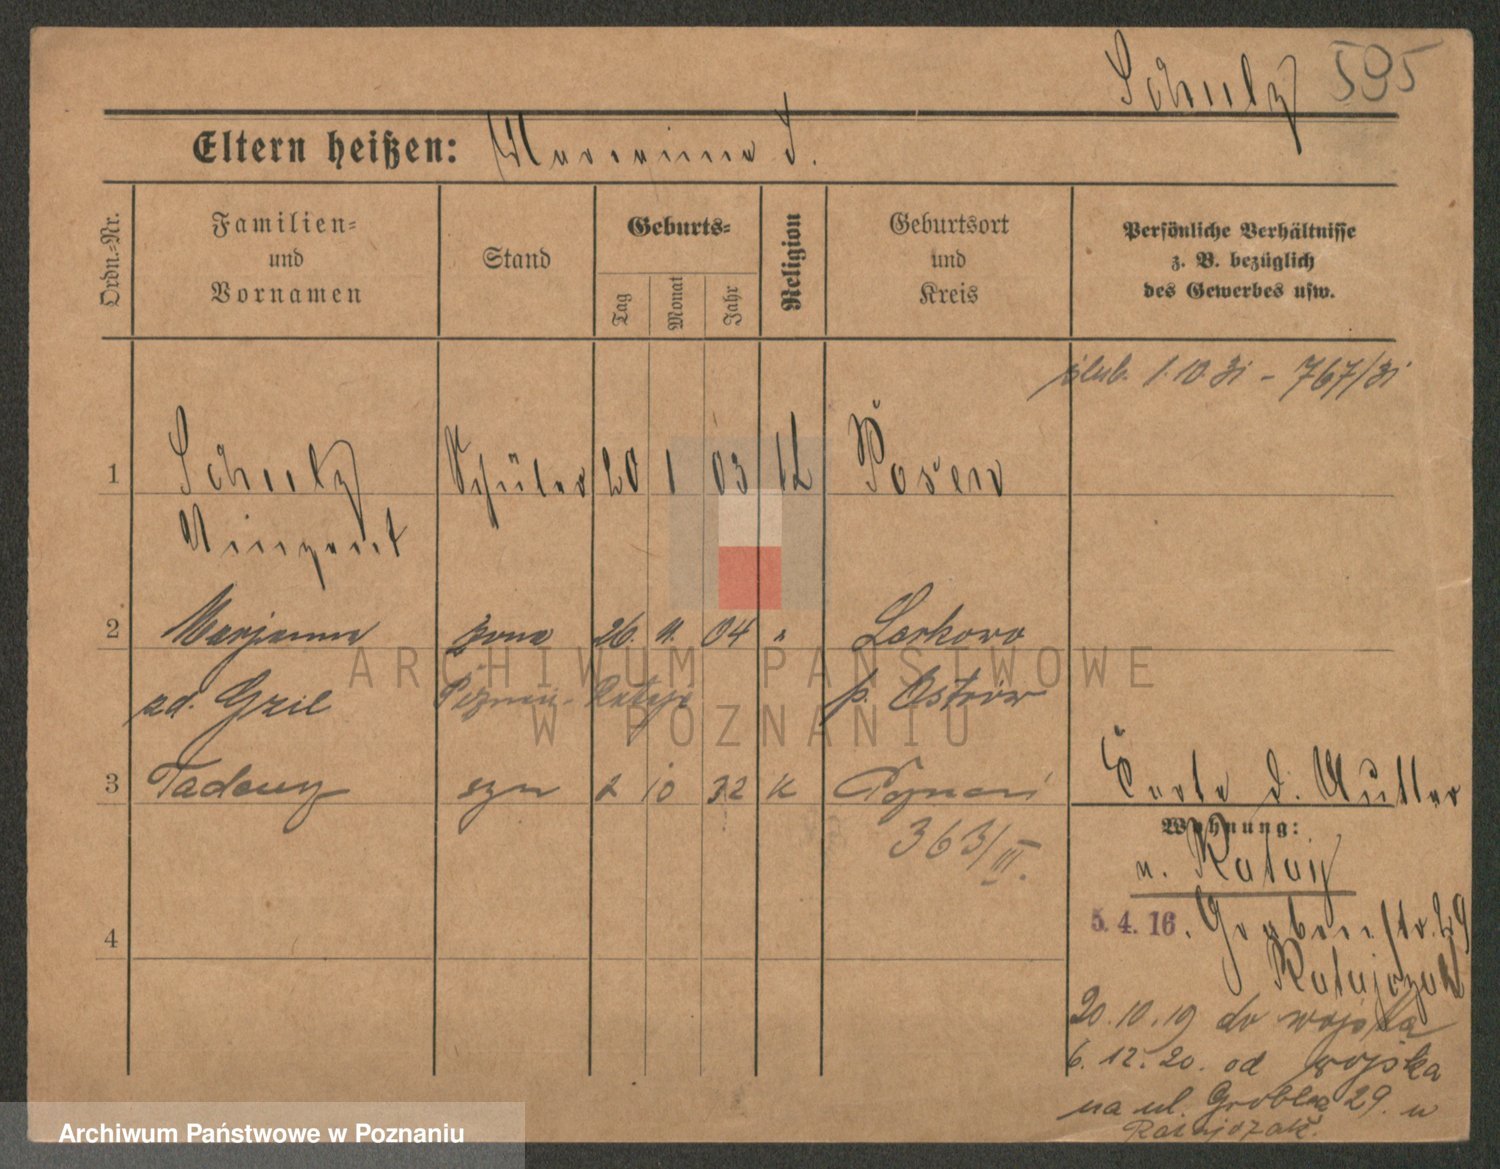 Schulz 595
Eltern heißen: Marianna S.
Ordn.-Nr.
Familien- und Vornamen
Stand
Geburts-
Tag
Monat
Jahr
Religion
Geburtsort und Kreis
Persönliche Verhältnisse
z. B. bezüglich
des Gewerbes usw.
ślub. 1.10.31 - 767/31
1 Schulz Schüler 20 1 03 Posen
Vinzent
2 Marjanna żona 26. 04 " Lookowo
zd. Gril Poznań - Rataje p. Ostrów
3 Tadeusz syn 2 10 32 K Poznań
363/III.
Karte d. Mutter
Wohnung:
n. Rataj
5. 4. 16. Grabenstr. 29
Ratajczak
4
20.10.19 do wojska
6.12.20. od wojska
na ul. Grobla 29. u
Ratajczak.
ARCHIWUM PAŃSTWOWE
W POZNANIU
Archiwum Państwowe w Poznaniu